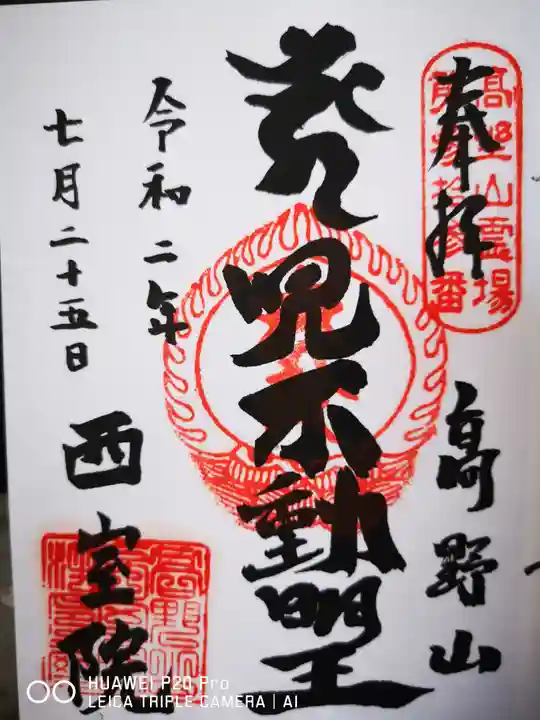 奉拝
高野山霊場
第参拾参番
高野山
荒児不動明王
令和二年
七月二十五日
西室院
HUAWEI P20 Pro
LEICA TRIPLE CAMERA | AI